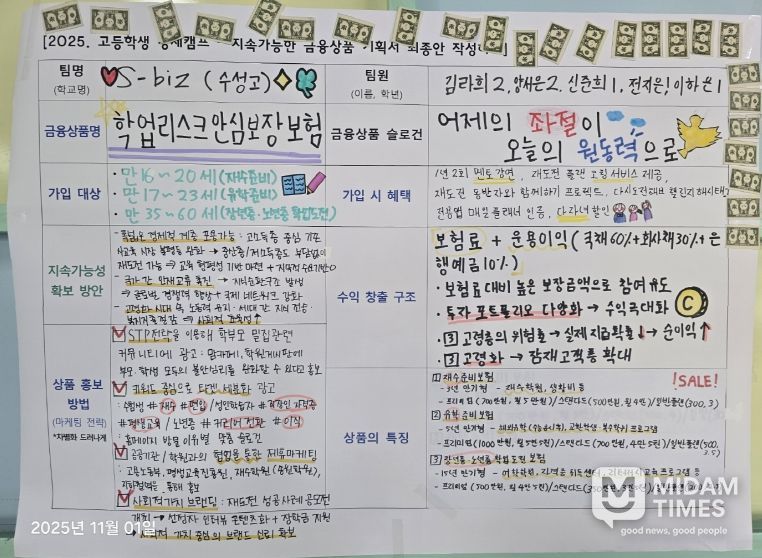 [2025. 고등학생 경제캠프 - 지속가능한 금융상품 기획서 최종안 작성
팀명
(학교명)
S-biz (수성고)
팀원
(이름, 학년)
김라희 2, 양서은 2, 신준희 1, 전지은1, 이하은 1
금융상품명
학업리스크안심보장보험
금융상품 슬로건
어제의 좌절이
오늘의 원동력으로
가입 대상
• 만 16~20세 (재수준비)
• 만 17~23세 (유학준비)
• 만 35~60세 (장년층·노년층 학업도전)
가입 시 혜택
1년 2회 멘토 강연, 재도전 플랜 코칭 서비스 제공,
재도전 동반자와 함께하기 프로젝트,
매일 플래너 인증, 다자녀할인
지속가능성
확보 방안
- 폭넓은 경제적 계층 포용가능 : 고소득층 중심 기존
사교육 시장 불평등 완화 → 중산층/저소득층도 부담없이
재도전 가능 → 교육 형평성 기반 마련 + 지속적 수요기반
- 국가 간 인재교류 촉진 → 지식순환구조 형성
→ 글로벌 경쟁력 향상 + 국제 네트워크 강화
- 고령화 시대 속 노동력 유지 · 세대 간 지식 전승 ·
복지지출절감 → 사회적 효율성↑
수익 창출 구조
보험료 + 운용이익 (국채 60% + 회사채 30% + 은
행예금 10%)
• 보험료 대비 높은 보장금액으로 참여 유도
• 투자 포트폴리오 다양화 → 수익극대화
• 3 고령층의 위험률 → 실제 지급확률↓ → 순이익↑
• 3 고령화 → 잠재고객층 확대
상품 홍보
방법
(마케팅 전략)
*차별화 드러나게
STP전략을 이용해 학부모 밀집관련
커뮤니티에 광고 : 맘카페, 학원게시판에
부모·학생 모두의 불안심리를 완화할 수 있다고 홍보
키워드 중심으로 타겟 세분화 광고
: 수험생 #재수 #편입 / 성인학습자 #직장인 자격증
#평생교육 / 노년층 #커리어 전환 #이직
: 홈페이지 방문 이유별 맞춤 슬로건
공공기관 / 학원과의 협업을 통한 제휴마케팅
: 고용노동부, 평생교육진흥원, 재수학원
통해 홍보
사회적가치 브랜딩 : 재도전 성공사례 공모전
개최 → 선정자 인터뷰 콘텐츠화 + 장학금 지원
→ 사회적 가치 중심의 브랜드 신뢰 확보
상품의 특징
!SALE!
1 재수준비보험
- 3년 만기형 - 재수학원, 생활비 등
- 프리미엄 (700만원, 월 5만원) / 스탠다드 (500만원, 월 4만) / 일반플랜 (300, 3)
2 유학 준비 보험
- 5년 만기형 -
- 프리미엄 (1000만원, 월 5만 5천) / 스탠다드 (700만원, 4만 5천) / 일반플랜 (500, 3.5)
3 장년층·노년층 학업도전 보험
- 15년 만기형 -
- 프리미엄 (500만원, 월 4만 5천) / 스탠다드
2025년 11월 01일
MIDAM
TIMES
good news, good people